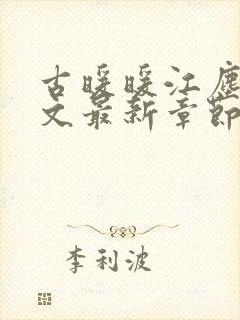 古暖暖江尘
文最新章节
李利波